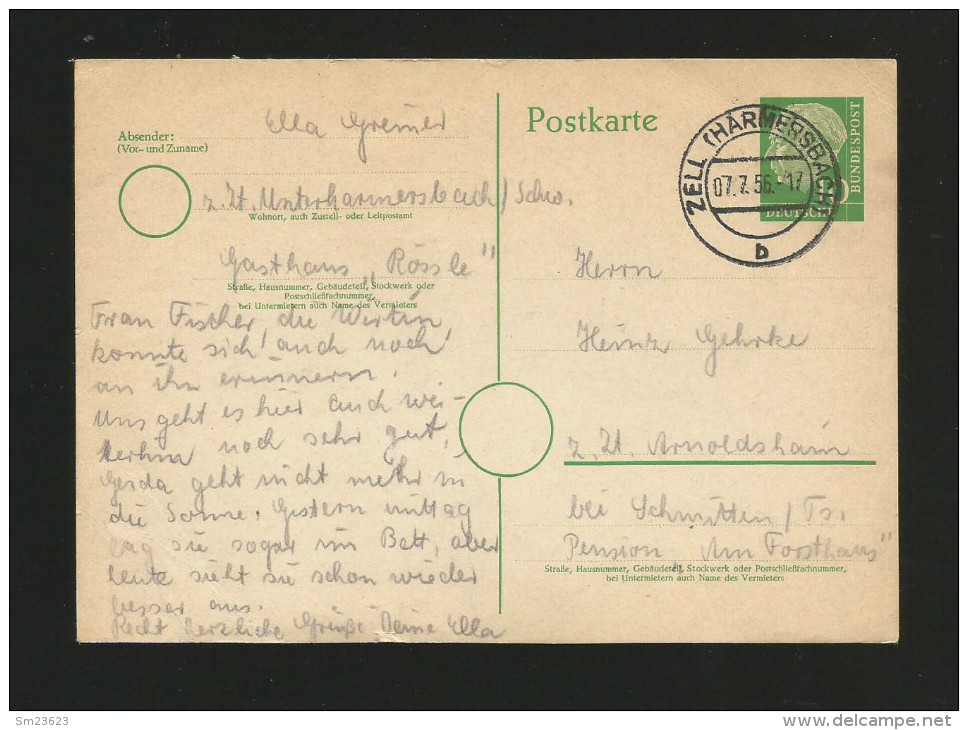 Ella Greiner
Postkarte
Absender:
(Vor- und Zuname)
ZELL (HARMERSBACH)
07.7.56.-17
b
DEUTSCHE
BUNDESPOST
z. Zt. Unterharmersbach / Schw.
Wohnort, auch Zustell- oder Leitpostamt
Gasthaus „Rössle"
Straße, Hausnummer, Gebäudeteil, Stockwerk oder
Postschließfachnummer,
bei Untermietern auch Name des Vermieters
Frau Fischer, die Wirtin,
konnte sich auch noch
an ihn erinnern.
Uns geht es hier auch wei-
terhin noch sehr gut,
Gerda geht nicht mehr in
die Sonne. Gestern mittag
lag sie sogar im Bett, aber
heute sieht sie schon wieder
besser aus.
Recht herzliche Grüße Deine Ella
Herrn
Heinz Gehrke
z. Zt. Arnoldshain
bei Schmitten / Ts.
Pension „Am Forsthaus"
Straße, Hausnummer, Gebäudeteil, Stockwerk oder Postschließfachnummer,
bei Untermietern auch Name des Vermieters
Sm23623
delcampe.net